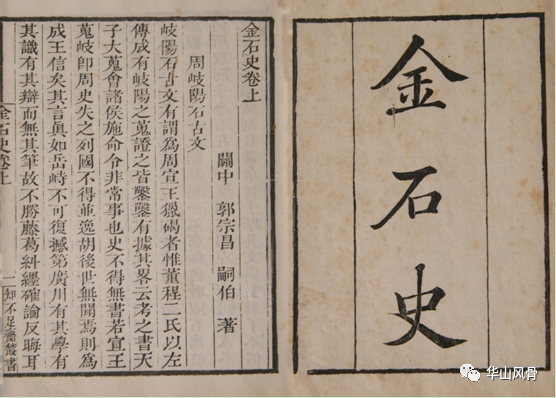 金石史
金石史卷上
關中 郭宗昌 嗣伯 著
周岐陽石古文
岐陽石古文有謂為周宣王獵碣者惟董程二氏以左
傳成有岐陽之蒐證之皆鑿鑿有據其畧云考之書天
子大蒐會諸侯施命令非常事也史不得無書若宣王
蒐岐卽周史失之列國不得並逸胡後世無聞焉則為
成王信矣其言眞如岳峙不可復撼第廣川有其學有
其識有其辯而無其筆故不勝藤葛糾纏確論反晦耳
金石史卷上
一
知不足齋叢書
华山风骨